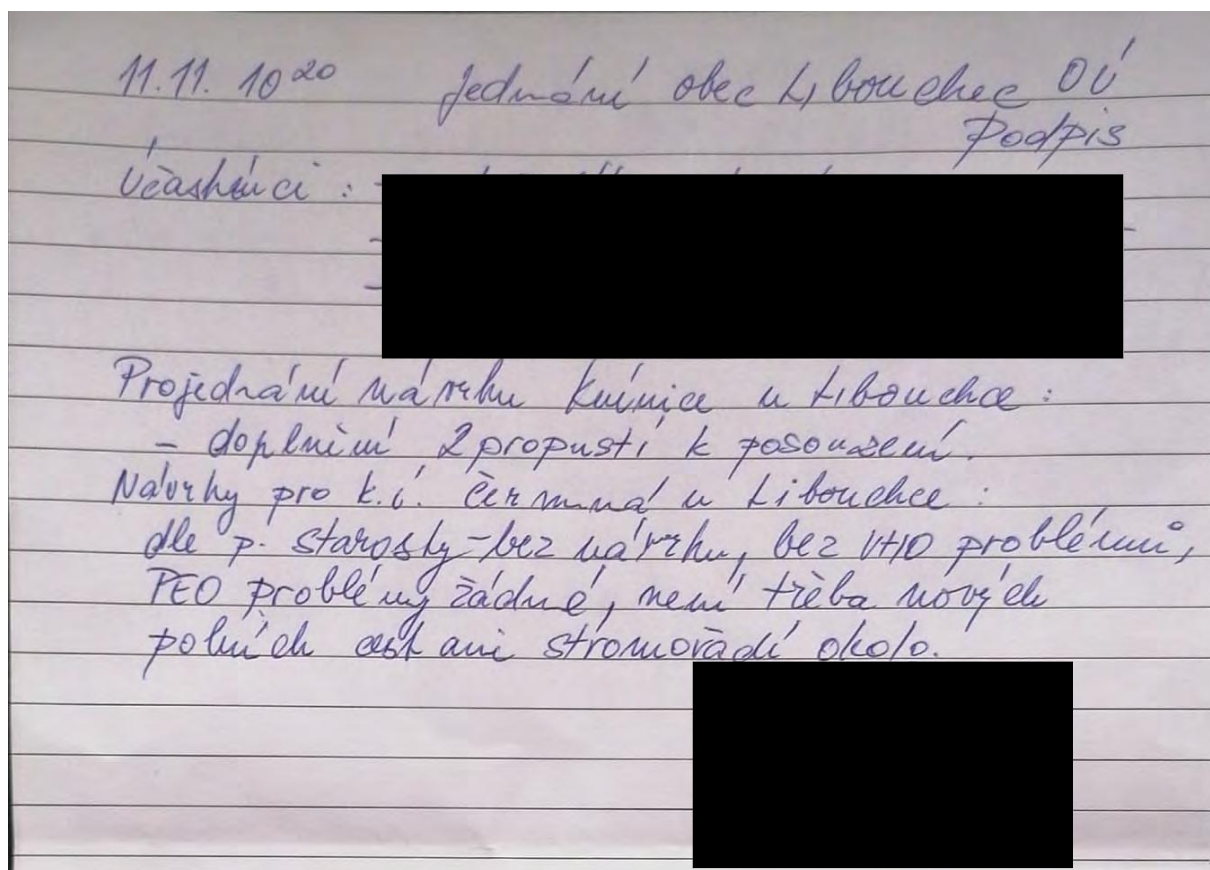 11.11. 10²⁰ Jednání obec Libouchec OÚ
Podpis
Účastníci : -
-
-
Projednání návrhu Knínice u Libouchce :
- doplnění 2 propustí k posouzení.
Návrhy pro k.ú. Čermná u Libouchce :
dle p. starosty - bez návrhu, bez VHO problémů,
PEO problémy žádné, není třeba nových
polních cest ani stromořadí okolo.